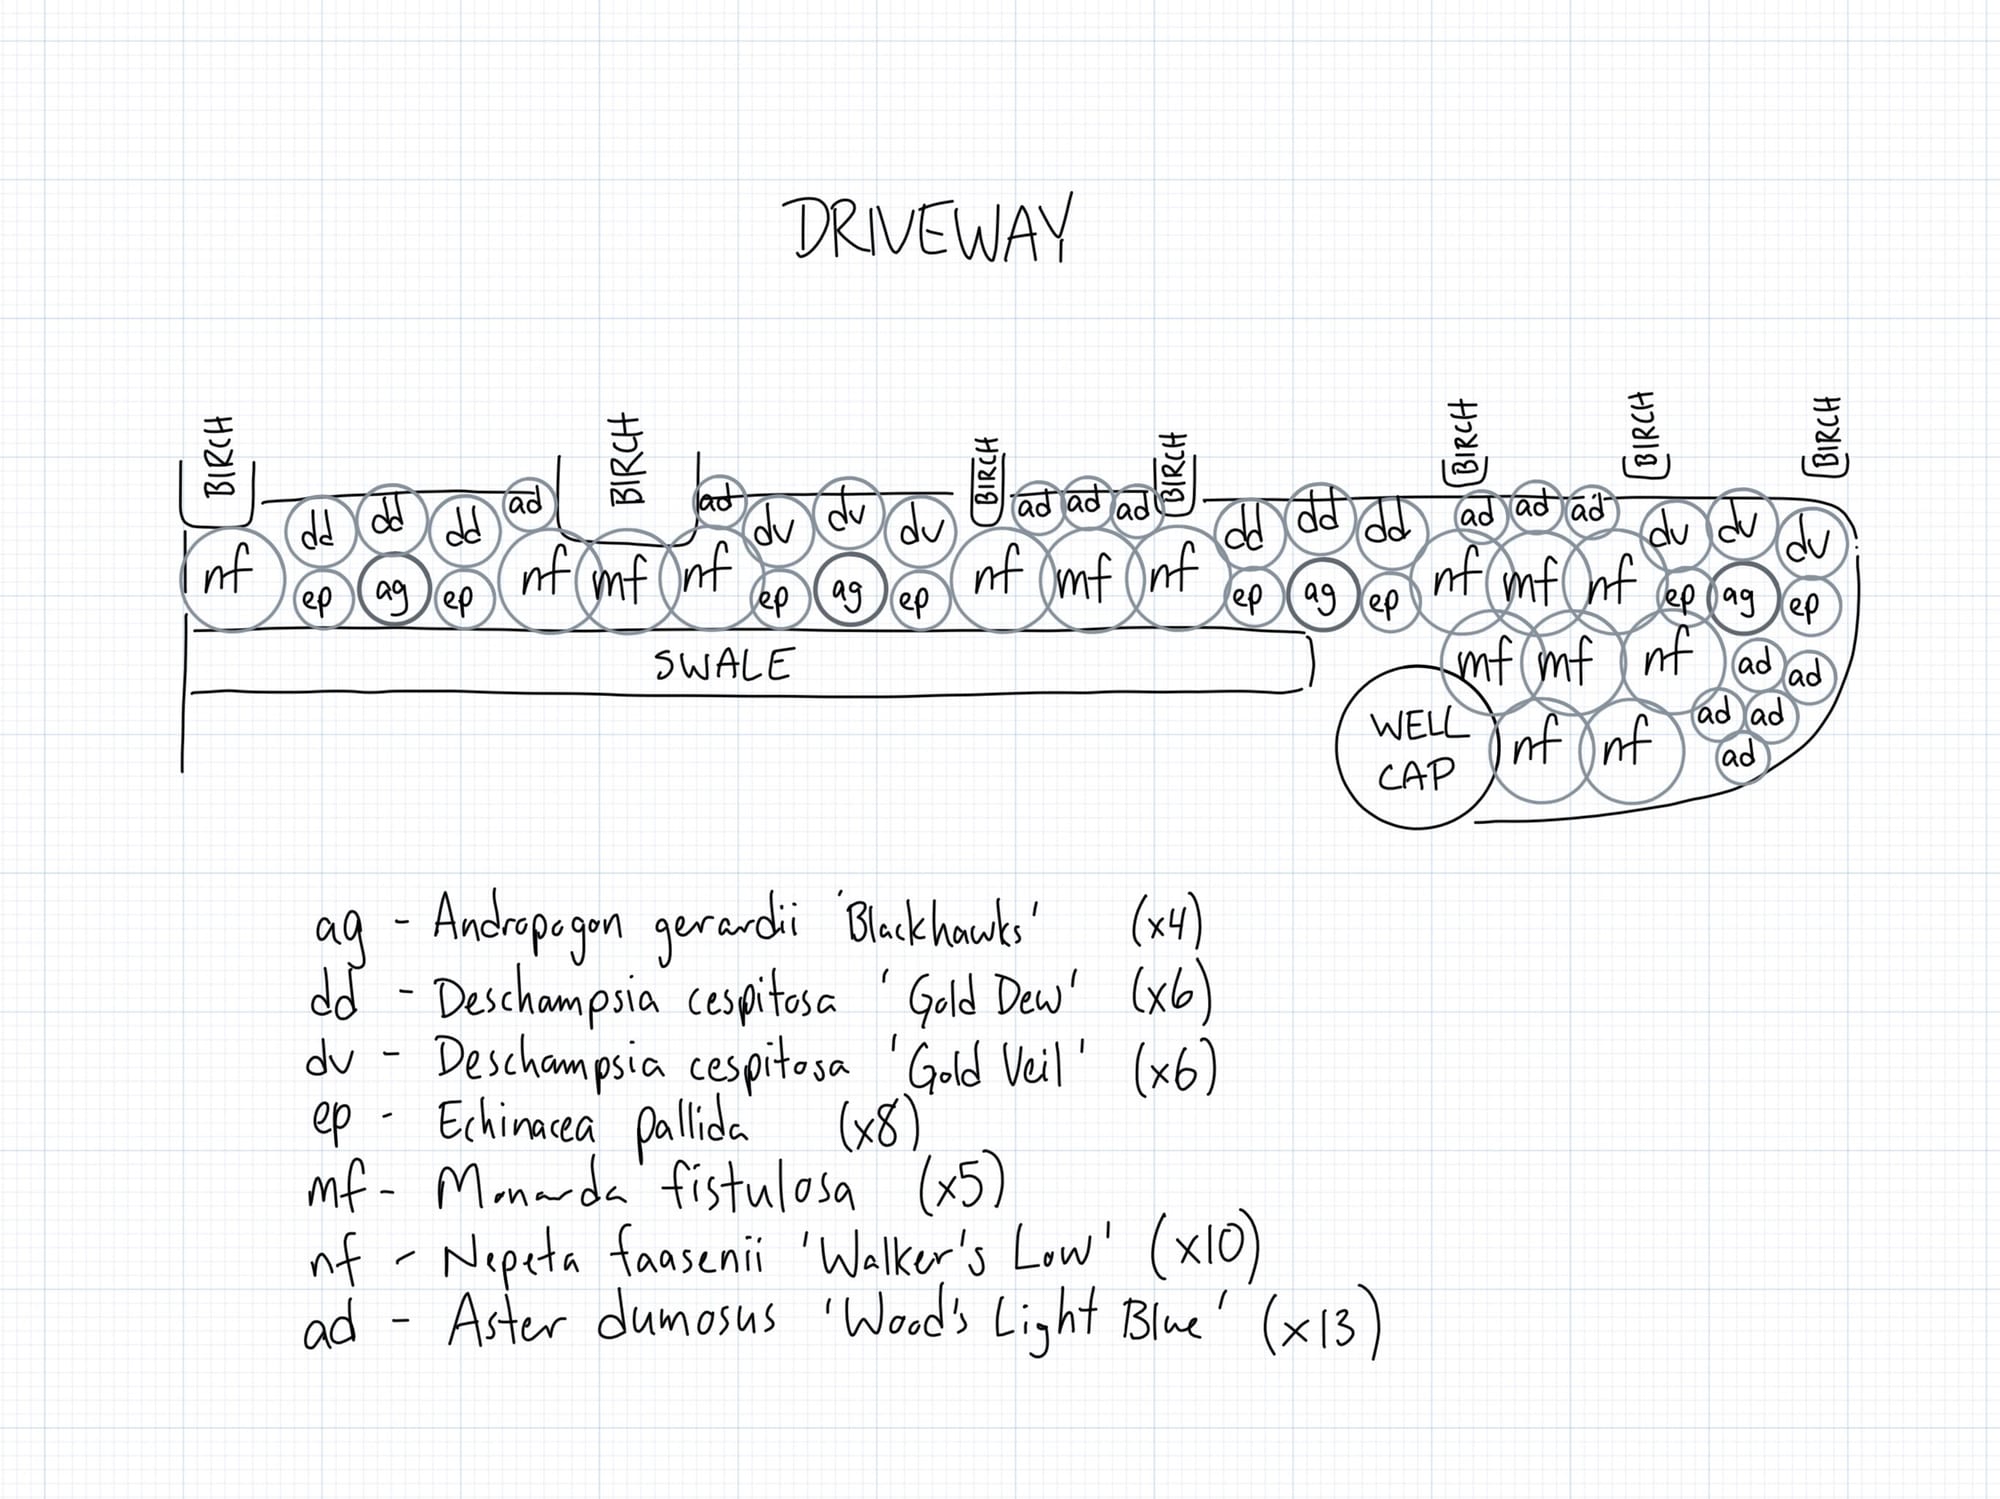 DRIVEWAY
BIRCH BIRCH BIRCH BIRCH BIRCH BIRCH BIRCH
dd dd dd ad ad dv dv dv ad ad ad dd dd dd ad ad ad dv dv dv
nf ep ag ep nf mf nf ep ag ep nf mf nf ep ag ep nf mf nf ep ag ep
SWALE mf mf nf ad ad
ad ad
WELL CAP nf nf ad
ag - Andropogon gerardii 'Blackhawks' (x4)
dd - Deschampsia cespitosa 'Gold Dew' (x6)
dv - Deschampsia cespitosa 'Gold Veil' (x6)
ep - Echinacea pallida (x8)
mf - Monarda fistulosa (x5)
nf - Nepeta faasenii 'Walker's Low' (x10)
ad - Aster dumosus 'Wood's Light Blue' (x13)